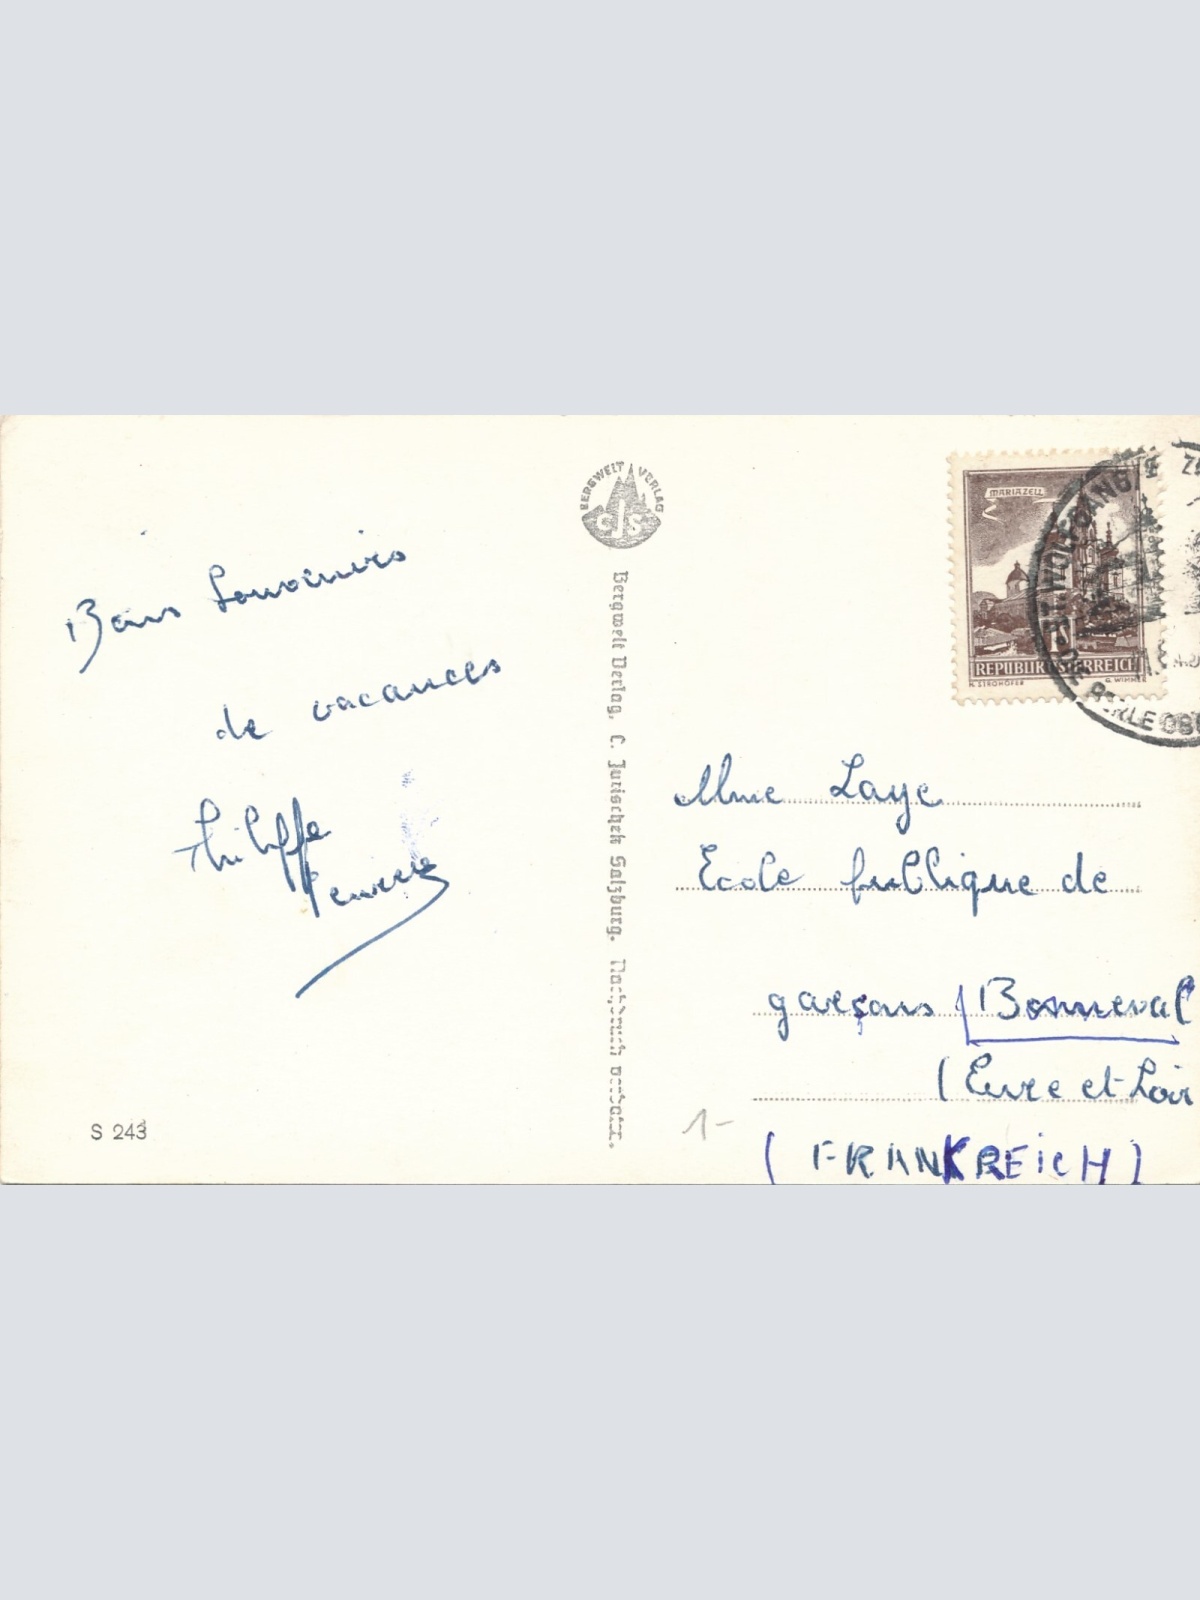 Bons Souvenirs
de vacances
Philippe
S 243
BERGWELT VERLAG
CJS
Bergwelt Verlag, C. Jurischek Salzburg. Nachdruck verboten.
MARIAZELL
1 S
REPUBLIK ÖSTERREICH
H. STROHOFER G. WIMMER
ST. WOLFGANG
DIE PERLE OB
Mme Laye
Ecole publique de
garçons Bonneval
(Eure et Loir
(FRANKREICH)
1-